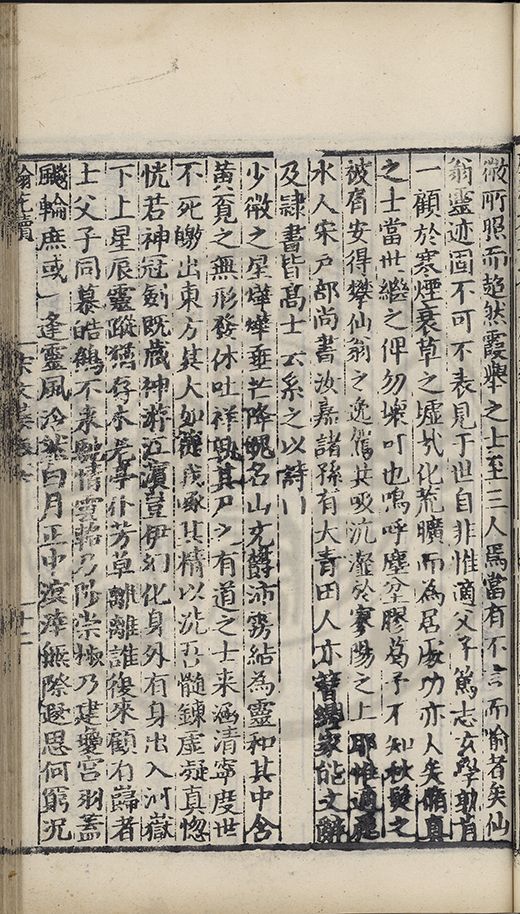 微所照而超然霞舉之士至三人焉當有不言而喻者矣仙
翁靈迹固不可不表見于世自非惟適父子篤志玄學孰肯
一顧於寒煙衰草之墟化荒曠而為居處功亦人矣脩真
之士當世繼之俾勿壞可也嗚呼塵坌膠葛予不知秋髮之
被肩安得攀仙翁之逸駕共吸沆瀣於寥陽之上耶惟適麗
水人宋戶部尚書汝嘉諸孫有大青田人亦簪纓家能文辭
及隸書皆高士云系之以詩
少微之星燁燁垂芒降魄名山充沛雱結為靈和其中含
黃覓之無形發休吐祥其有道之士来涵清寧度世
不死皦出東方其人如我啄其精以洗吾髓鍊虛凝真惚
恍若神冠劍既藏神游江濱豈伊幻化身外有身出入河嶽
下上星辰靈蹤猶存芳草離離誰復來顧有者
士父子同慕皓鶴不来情雲乃陟崇椒乃建宮羽蓋
飈輪庶或一逢靈風泠然白月正中無際遐思何窮況